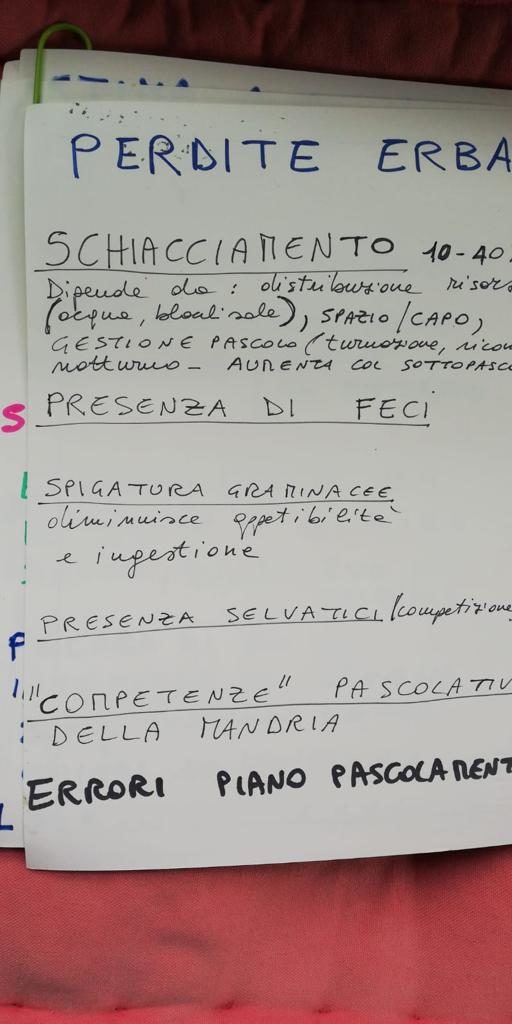 PERDITE ERBA
SCHIACCIAMENTO 10-40%
Dipende da: distribuzione risors
(acqua, blocchi sale), SPAZIO/CAPO,
GESTIONE PASCOLO (turnazione, ricov
notturno - AUMENTA COL SOTTOPASCO
PRESENZA DI FECI
SPIGATURA GRAMINACEE
diminuisce appetibilità
e ingestione
PRESENZA SELVATICI (competizione
"COMPETENZE" PASCOLATIV
DELLA MANDRIA
ERRORI PIANO PASCOLAMENT